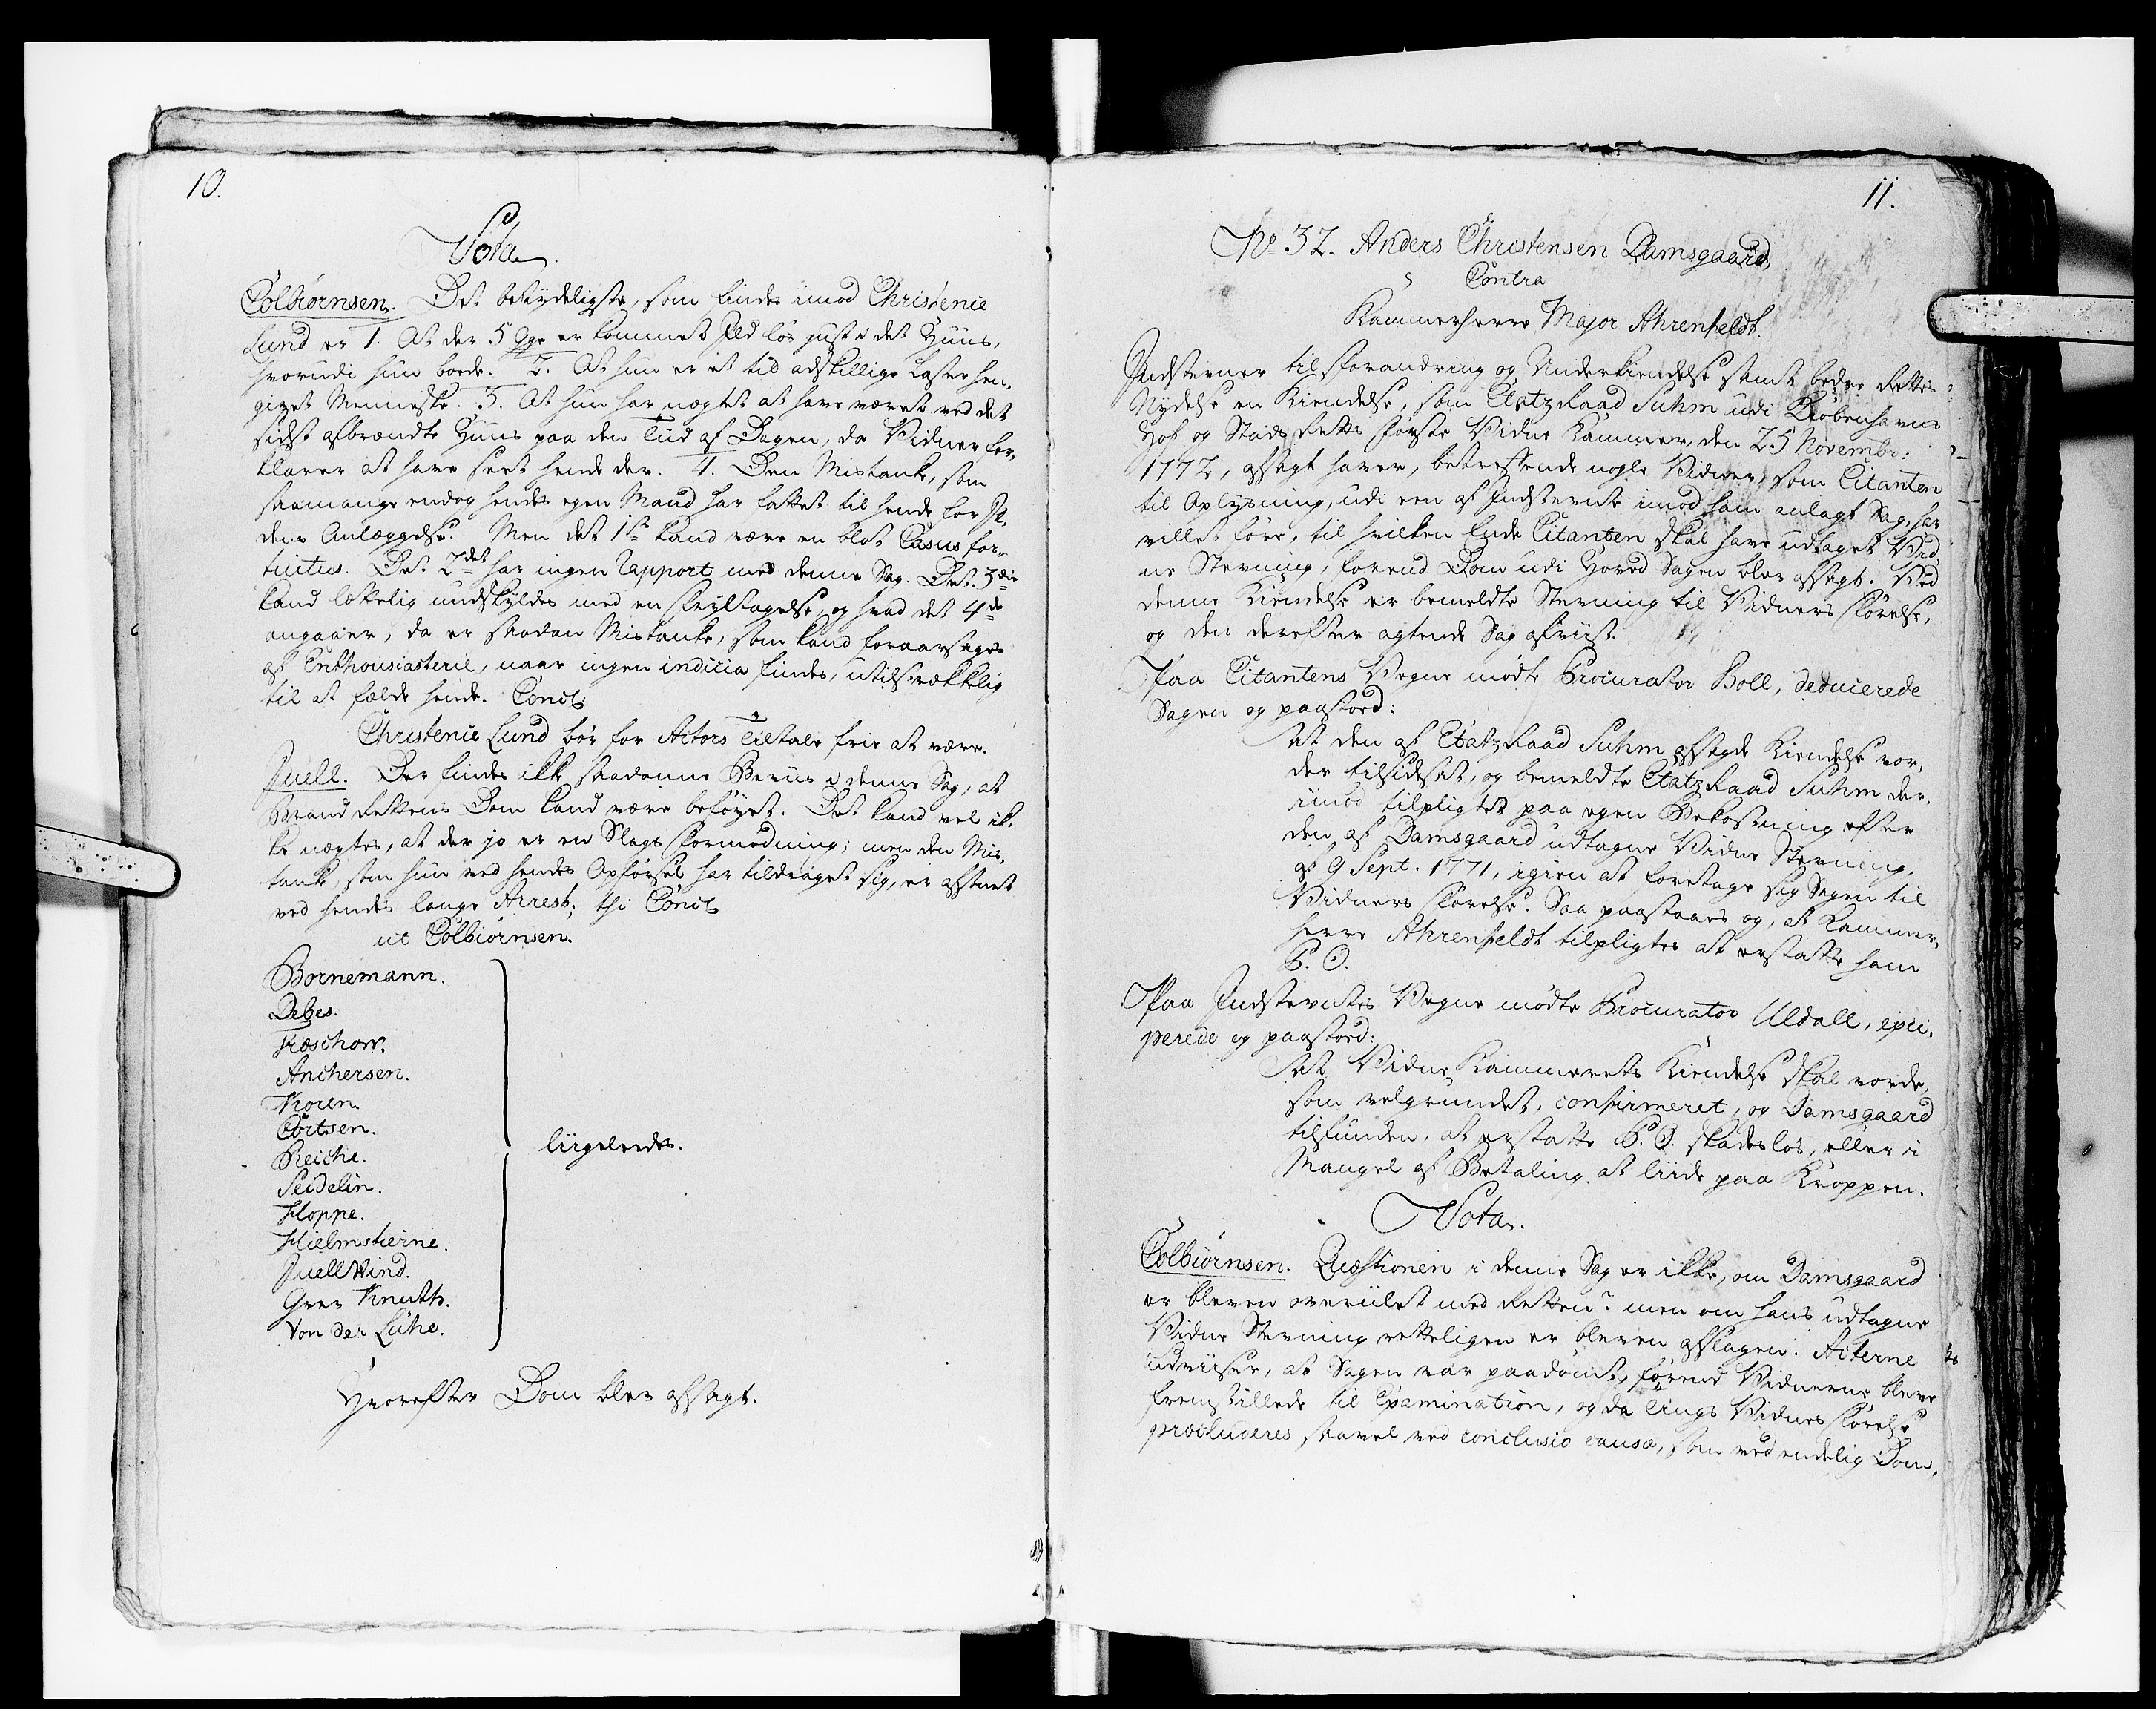 10.
Vota.
Colbiørnsen. Det betydeligste, som findes imod Christenie
Lund er 1. At der 5 Gge er kommet Ild løs just i det Huus,
hvorudi hun boede. 2. At hun er et til adskillige Laster hen-
givet Menneske. 3. At hun har nægtet at have været ved det
sidst afbrændte Huus paa den Tiid af Dagen, da Vidner for-
klarer at have seet hende der. 4. Den Mistanke, som
saamange endog hendes egen Mand har fattet til hende for Il-
dens Anlæggelse. Men det 1ste kand være en blot Casus for-
tuitus. Det 2det har ingen Rapport med denne Sag. Det 3die
kand lættelig undskyldes med en Feyltagelse, og hvad det 4de
angaaer, da er saadan Mistanke, som kand foraarsages
af Enthousiasterie, naar ingen indicia findes, utilstrækkelig
til at fælde hende. Concl:
Christenie Lund bør for Actors Tiltale frie at være.
Juell. Der findes ikke saadanne Beviis i denne Sag, at
Brand Rettens Dom kand være beføyet. Det kand vel ik-
ke nægtes, at der jo er en Slags Formodning; men den Mis-
tanke, som hun ved hendes Opførsel har tildraget sig, er afsonet
ved hendes lange Arrest; thi Concl:
ut Colbiørnsen.
Bornemann.
Debes.
Træschow.
Anchersen.
Koren.
Cørtsen.
Reiche.
Seidelin.
Hoppe.
Hielmstierne.
Juell Wind.
Grev Knuth.
Von der Lühe.
liigeleedes.
Hvorefter Dom blev afsagt.
11.
No 32. Anders Christensen Damsgaard,
Contra
Kammerherre Major Ahrenfeldt.
Indstevner til Forandring og Underkiendelse samt bedre Rettes
Nydelse en Kiendelse, som Etatz Raad Suhm udi Kiøbenhavns
Hof og Stads Retts første Vidne Kammer, den 25 Novembr:
1772, afsagt haver, betreffende nogle Vidner, som Citanten
til Oplysning, udi een af Indstevnte imod ham anlagt Sag, har
villet føre, til hvilken Ende Citanten skal have udtaget Vid
ne Stevning, førend Dom udi Hoved Sagen blev afsagt. Ved
denne Kiendelse er bemeldte Stevning til Vidners Førelse,
og den derefter agtende Sag afviist.
Paa Citantens Vegne mødte Procurator Boll, deducerede
Sagen og paastoed:
At den af Etatz Raad Suhm afsagde Kiendelse vor-
der tilsidesat, og bemeldte Etatz Raad Suhm der-
imod tilpligtet paa egen Bekostning efter
den af Damsgaard udtagne Vidne Stevning,
af 9 Sept. 1771, igien at foretage sig Sagen til
Vidners Førelse. Saa paastaaes og, at Kammer-
herre Ahrenfeldt tilpligtes at erstatte ham
P. O.
Paa Indstevntes Vegne mødte Procurator Uldall, exci-
perede og paastoed:
At Vidne Kammerets Kiendelse skal vorde,
som velgrundet, confirmeret, og Damsgaard
tilfunden, at erstatte P. O. skadesløs, eller i
Mangel af Betaling at liide paa Kroppen.
Vota.
Colbiørnsen. Quæstionen i denne Sag er ikke, om Damsgaard
er bleven overiilet med Retten? men om hans udtagne
Vidne Stevning retteligen er bleven afslagen. Acterne
udviiser, at Sagen var paadømt, førend Vidnerne bleve
fremstillede til Examination, og da Tings Vidnes Førelse
præcluderes saavel ved conclusio causæ, som ved endelig Dom,